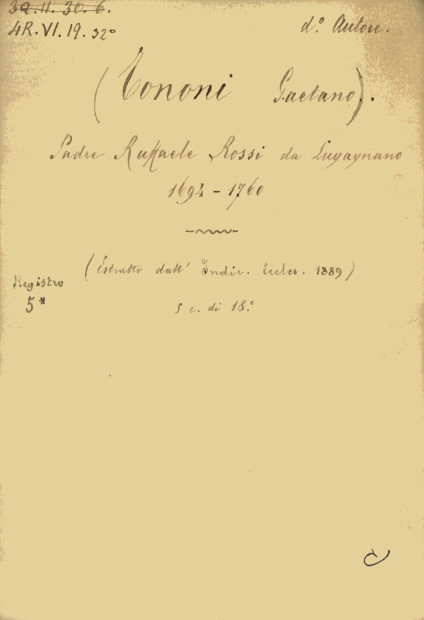 3a.11.30.6.
4R.VI.19.32°
d.° Autore.
(Tononi Gaetano).
Padre Raffaele Rossi da Lugagnano
1694 - 1760
(Estratto dall' Indic. Eccles. 1889)
Registro
5°
5 c. di 18.°